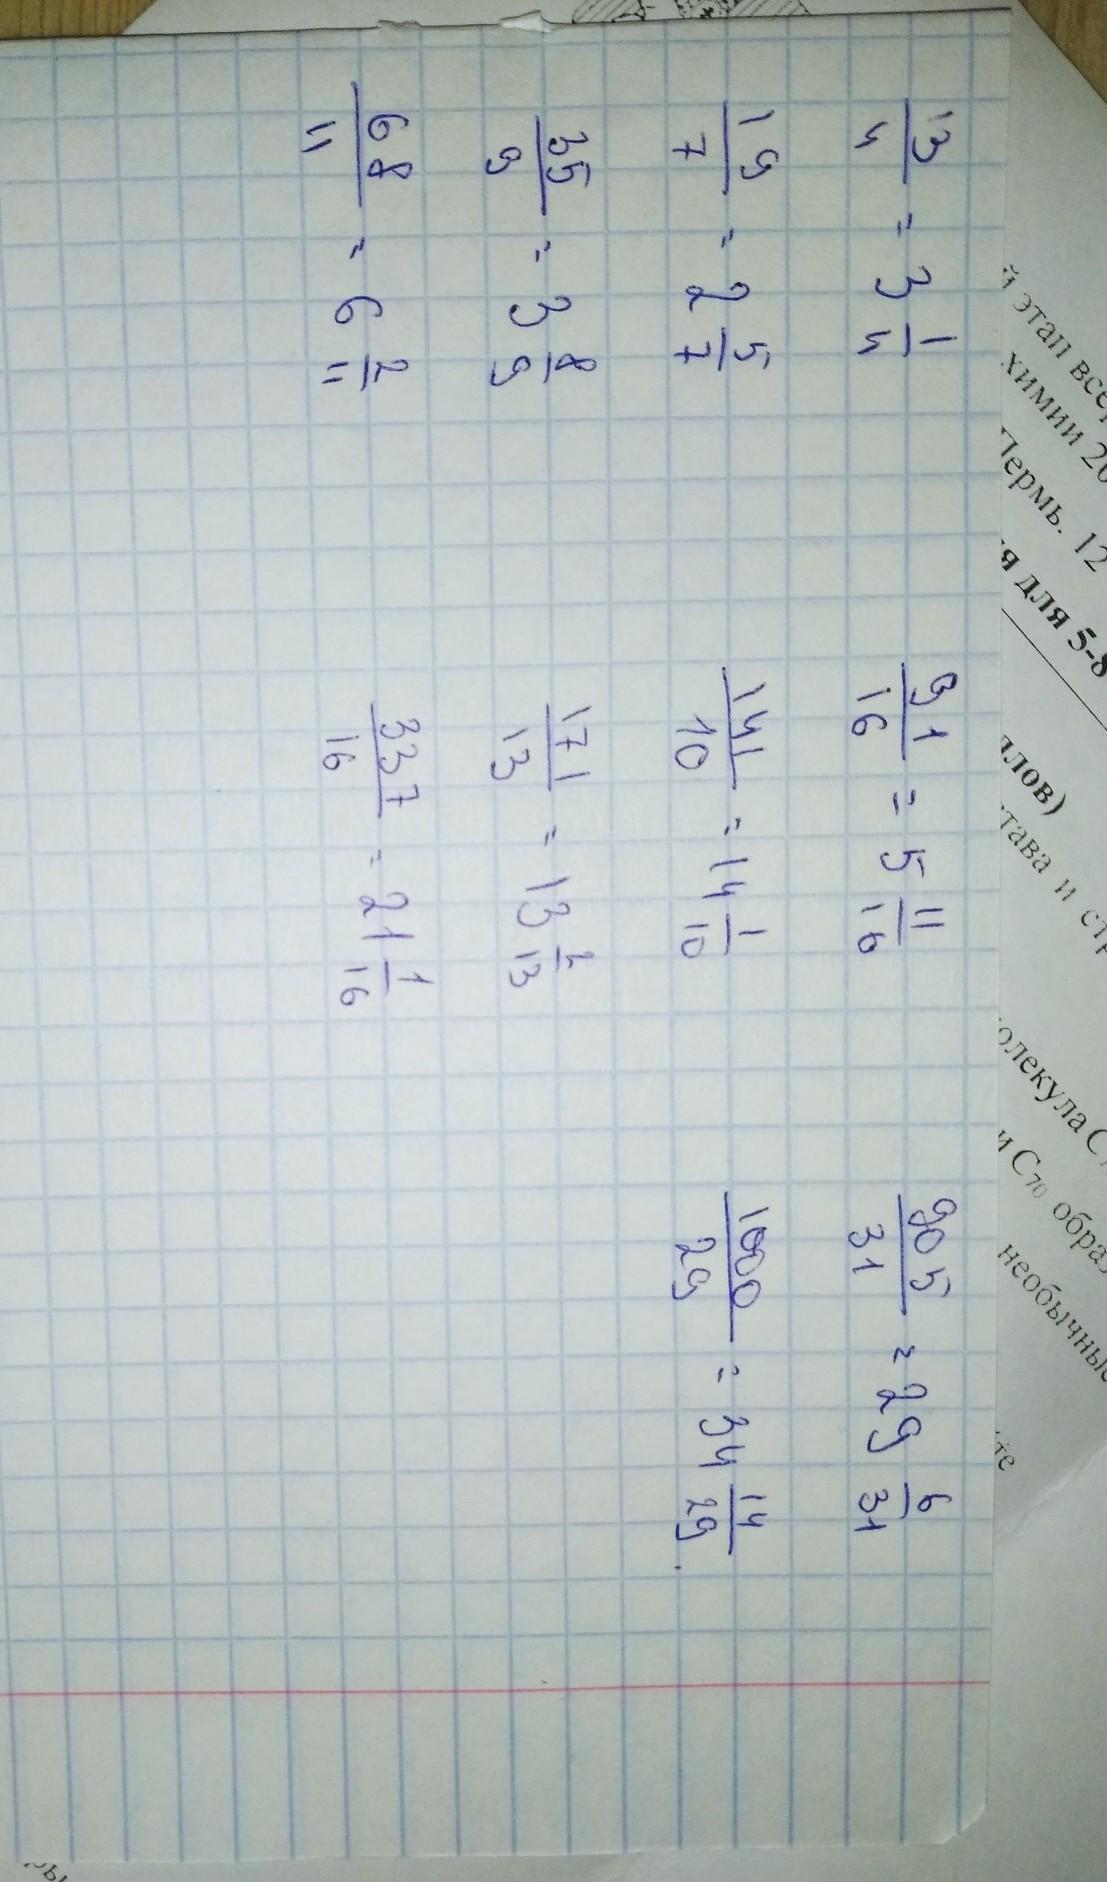 13/4 = 3 1/4
19/7 = 2 5/7
35/9 = 3 8/9
68/11 = 6 2/11
91/16 = 5 11/16
141/10 = 14 1/10
171/13 = 13 2/13
337/16 = 21 1/16
905/31 = 29 6/31
1000/29 = 34 14/29.
й этап все
химии 20
Пермь. 12
для 5-8
става и стр
и C70
необычные